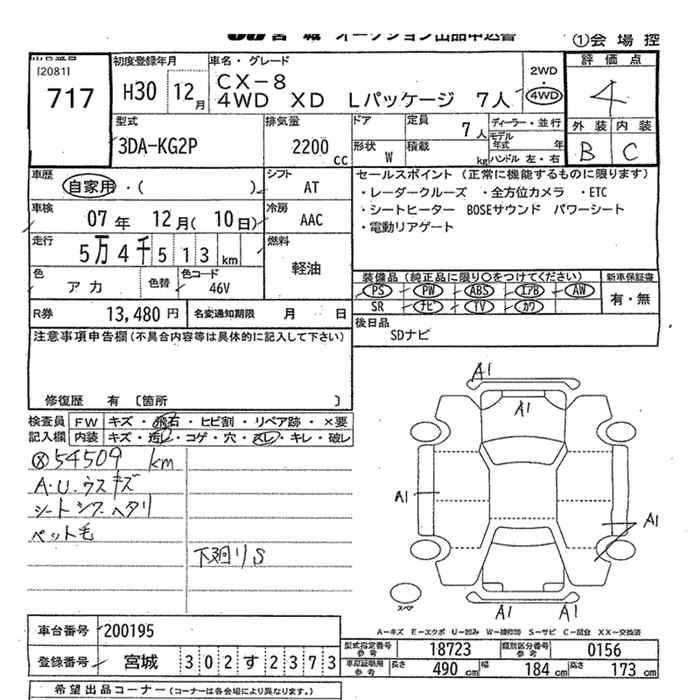 宮城 オークション出品申込書
①会場控
出品番号
[2081]
717
初度登録年月
H30 12月
車名・グレード
CX-8
4WD XD Lパッケージ 7人
2WD
・
4WD
評価点
4
外装 内装
B C
型式
3DA-KG2P
排気量
2200 CC
ドア
定員
7人
形状
W
積載
kg
ディーラー・並行
モデル年式 年
ハンドル 左・右
車歴
自家用・( )
シフト
AT
車検
07年 12月( 10日)
冷房
AAC
走行
5万4千513 km
燃料
軽油
色
アカ
色替
色コード
46V
R券
13,480円
名変通知期限 月 日
セールスポイント (正常に機能するものに限ります)
・レーダークルーズ ・全方位カメラ ・ETC
・シートヒーター BOSEサウンド パワーシート
・電動リアゲート
装備品(純正品に限り○をつけてください)
新車保証書
PS PW ABS エアB AW
SR ナビ TV カワ
有・無
後日品
SDナビ
注意事項申告欄(不具合内容等は具体的に記入して下さい)
修復歴 有 〔箇所 〕
検査員記入欄
FW キズ・飛石・ヒビ割・リペア跡・×要
内装 キズ・汚レ・コゲ・穴・スレ・キレ・破レ
54509 km
A.U.ウスキズ
シートシワ・ヘタリ
ペット毛
下廻りS
A1
A1
A1
A1
A1 A1
スペア
A-キズ E-エクボ U-凹み W-補修跡 S-サビ C-腐食 XX-交換済
車台番号
200195
登録番号
宮城 302す2373
型式指定番号参考
18723
類別区分番号参考
0156
車庫証明用参考
長さ 490 cm 幅 184 cm 高さ 173 cm
希望出品コーナー(コーナーは各会場により異なります。)